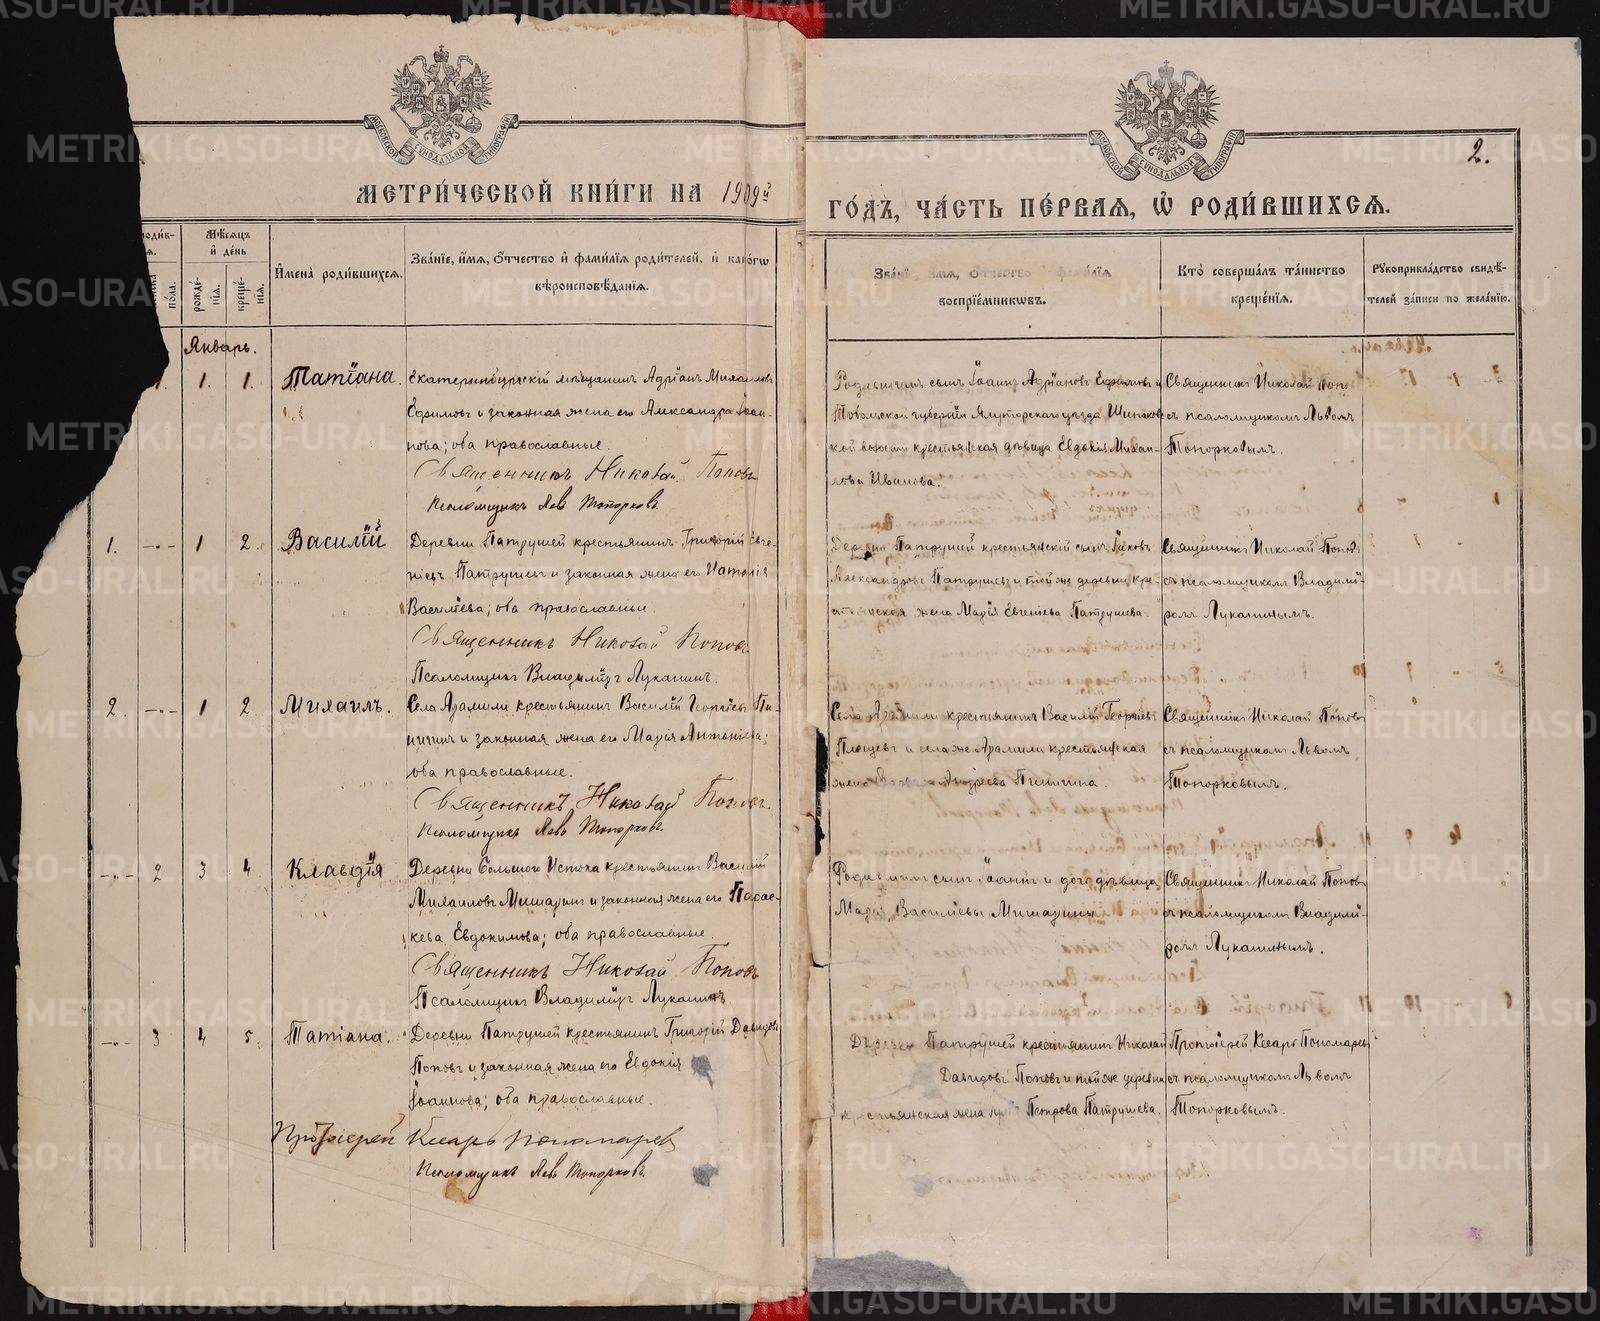 МОСКОВСКОЙ СѴНОДАЛЬНОЙ ТИПОГРАФІИ
МОСКОВСКОЙ СѴНОДАЛЬНОЙ ТИПОГРАФІИ
2.
МЕТРИ́ЧЕСКОЙ КНИ́ГИ НА 1909й
ГО́ДЪ, ЧА́СТЬ ПЕ́РВАЯ, Ѡ РОДИ́ВШИХСѦ.
Мѣ́сяцъ и де́нь
рожде́нія.
креще́нія.
по́ла.
Имена̀ роди́вшихся.
Зва́ніе, и́мя, о́тчество и фами́лія роди́телей, и како́гѡ
вѣроисповѣ́данія.
Зва́ніе, и́мя, о́тчество фами́лія
воспріе́мникѡвъ.
Кто̀ соверша́лъ та́инство
креще́нія.
Рукоприкла́дство свидѣ́-
телей за́писи по жела́нію.
Январь.
1. 1. 1. Татіана.
Екатеринбургскій мѣщанинъ Адріанъ Михаиловъ
Ефимовъ и законная жена его Александра Іоан-
нова; оба православные.
Священникъ Николай Поповъ
Псаломщикъ Левъ Топорковъ.
Родившихъ сынъ Іоаннъ Адріановъ Ефимовъ и
Тобольской губерніи Ялуторскаго уѣзда
волости крестьянская дѣвица Евдокія Михаи-
лова Иванова.
Священникъ Николай Поповъ
съ псаломщикомъ Львомъ
Топорковымъ.
1. -„- 1 2. Василій
Деревни Патрушей крестьянинъ Григорій Евге-
ніевъ Патрушевъ и законная жена его Наталія
Василіева; оба православные.
Священникъ Николай Поповъ
Псаломщикъ Владиміръ Луканинъ.
Деревни Патрушей крестьянскій сынъ Іаковъ
Александровъ Патрушевъ и той же деревни кре-
стьянская жена Марія Евгеніева Патрушева.
Священникъ Николай Поповъ
съ псаломщикомъ Владимі-
ромъ Луканинымъ.
2. -„- 1 2. Михаилъ.
Села Арамили крестьянинъ Василій Георгіевъ
и законная жена его Марія Антоніева;
оба православные.
Священникъ Николай Поповъ.
Псаломщикъ Левъ Топорковъ.
Села Арамили крестьянинъ Василій Георгіевъ
и села же Арамили крестьянская
жена Андреева
Священникъ Николай Поповъ
съ псаломщикомъ Львомъ
Топорковымъ.
-„- 2 3 4. Клавдія
Деревни Большого Истока крестьянинъ Василій
Михаиловъ Мишаринъ и законная жена его Парас-
кева Евдокимова; оба православные.
Священникъ Николай Поповъ
Псаломщикъ Владиміръ Луканинъ
Родившихъ сынъ Іоаннъ и дочь дѣвица
Марія Василіевы Мишарины
Священникъ Николай Поповъ
съ псаломщикомъ Владимі-
ромъ Луканинымъ.
-„- 3 4 5. Татіана.
Деревни Патрушей крестьянинъ Григорій Давидовъ
Поповъ и законная жена его Евдокія
Іоаннова; оба православные.
Протоіерей Кесарь Пономаревъ
Псаломщикъ Левъ Топорковъ.
Деревни Патрушей крестьянинъ Николай
Давидовъ Поповъ и той же деревни
крестьянская жена Петрова Патрушева.
Протоіерей Кесарь Пономаревъ
съ псаломщикомъ Львомъ
Топорковымъ.
METRIKI.GASO-URAL.RU